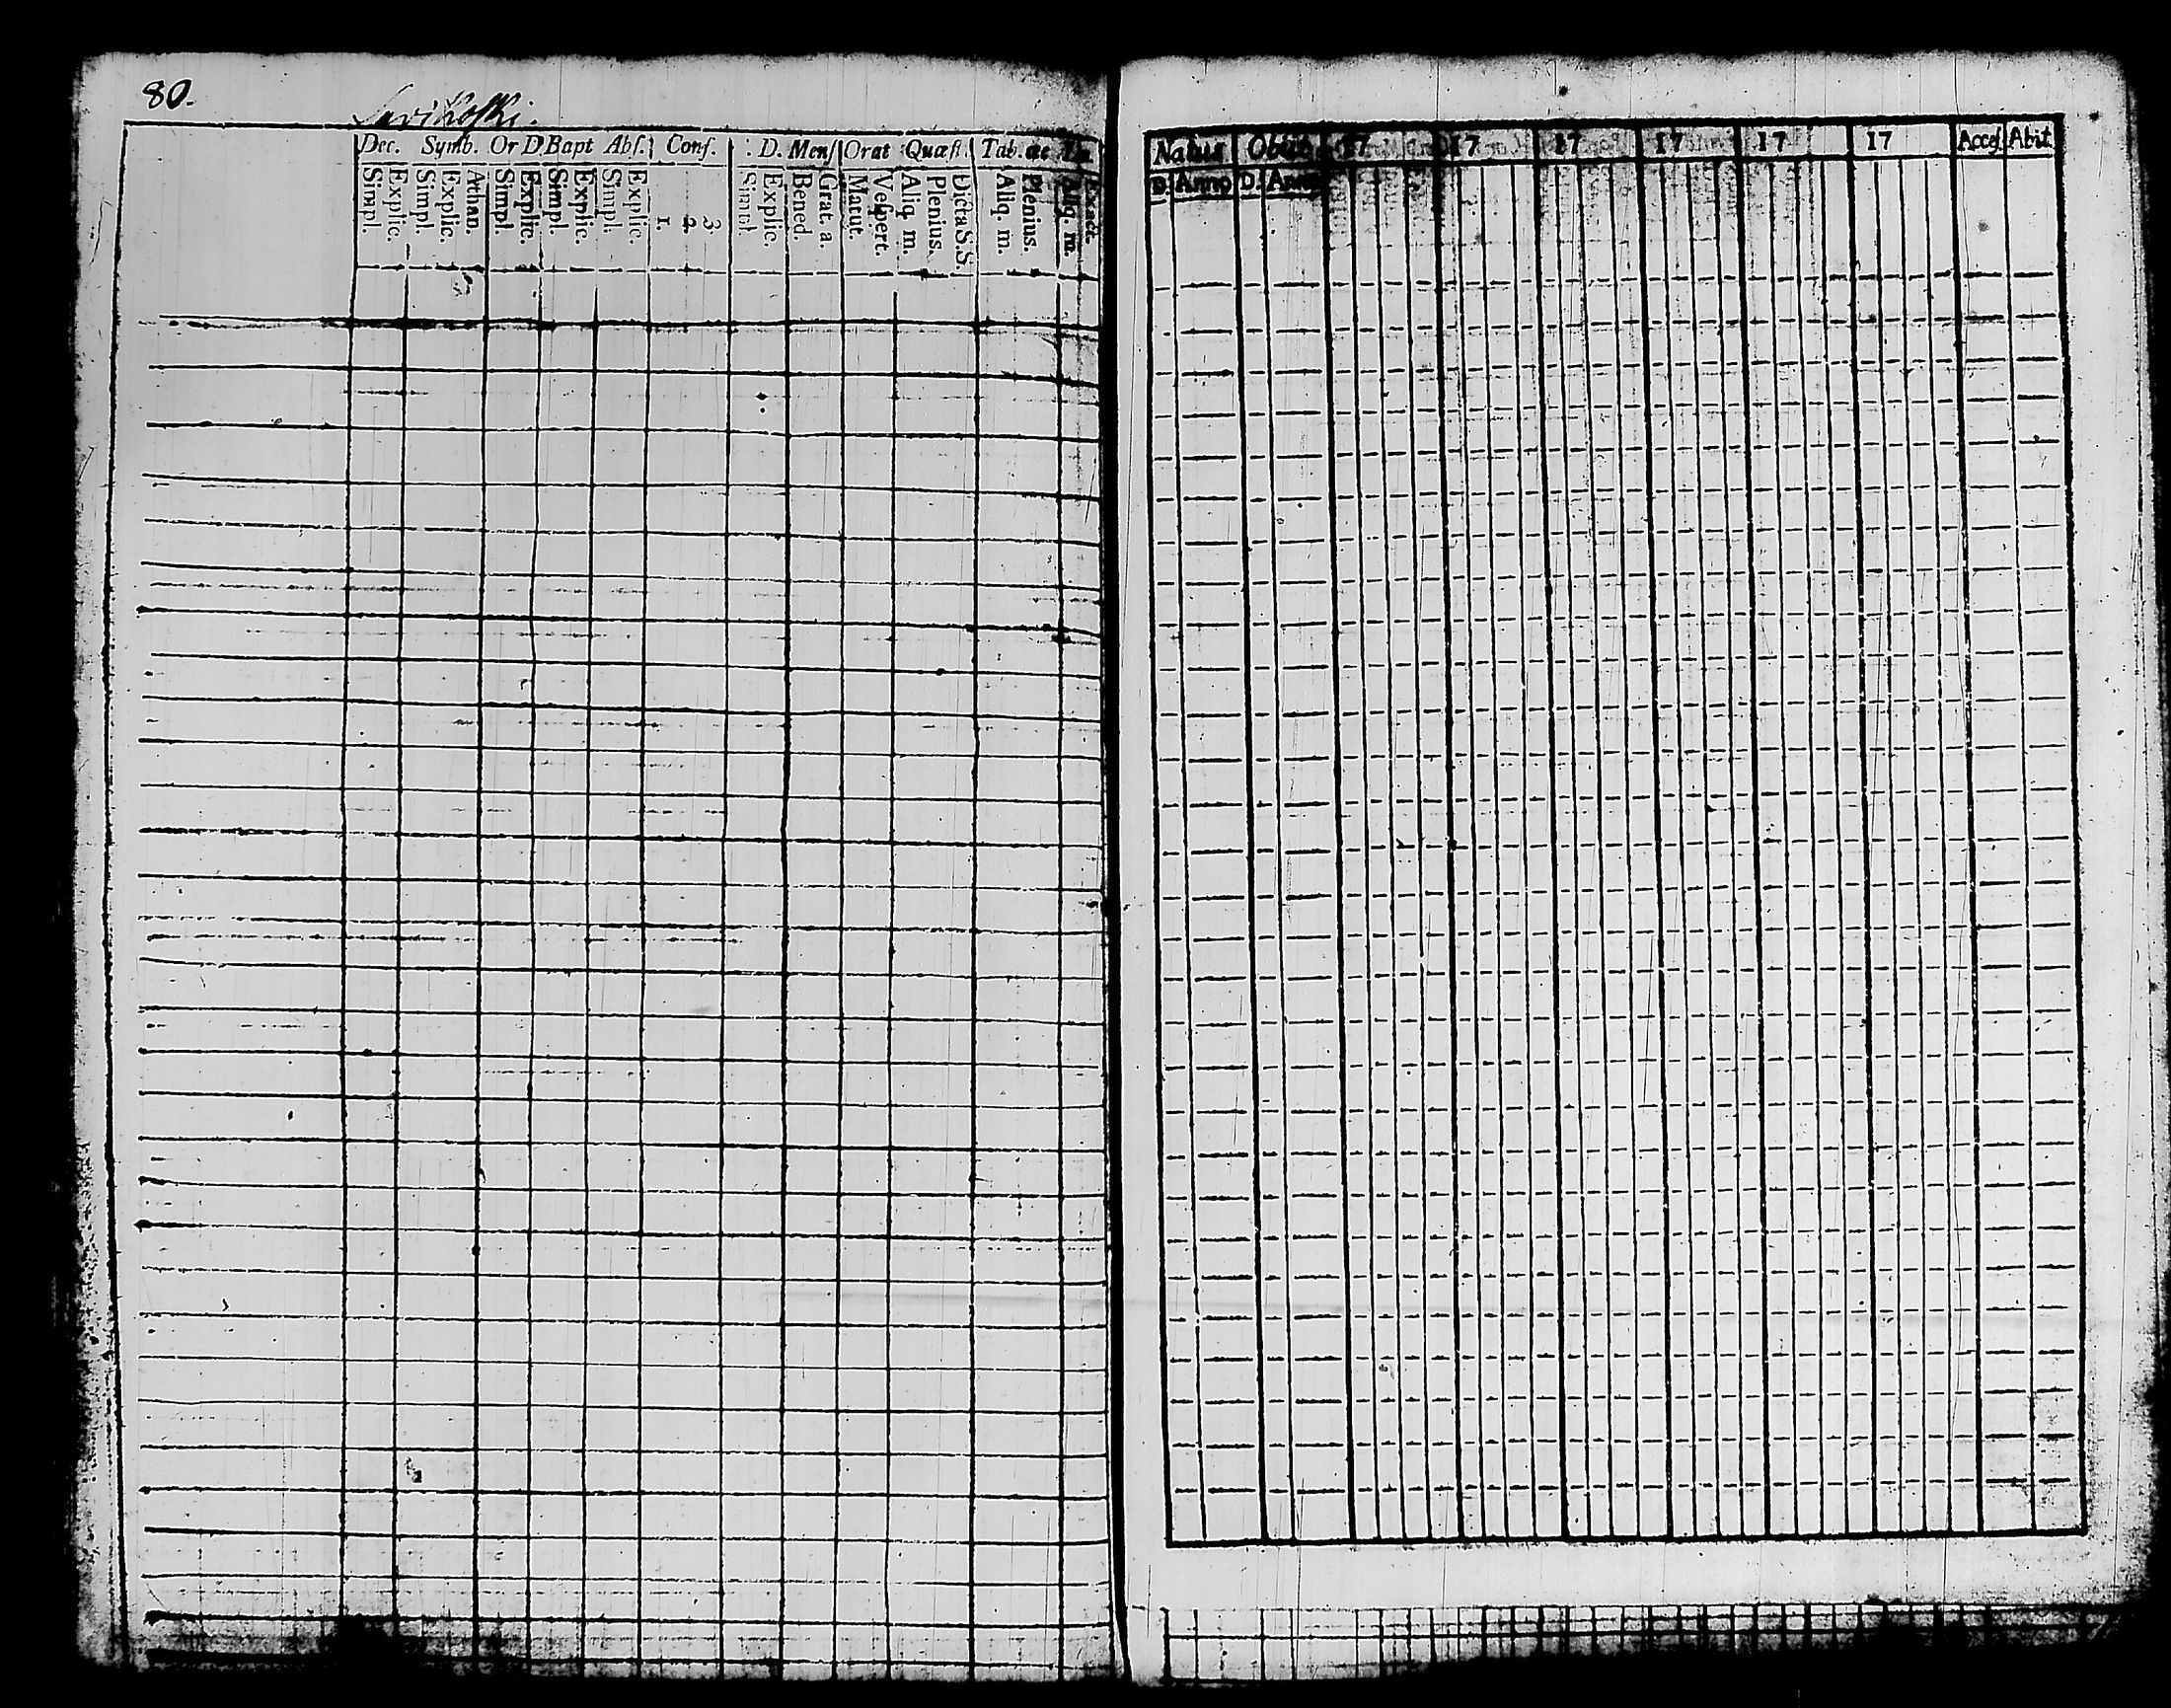 80.
Savikoſki.
Dec. Symb. Or D Bapt Abſ. Conf. : D. Menſ Orat Quæſt. Tab. œc
Simpl. Explic. Simpl. Explic. Athan. Simpl. Explic. Simpl. Explic. Simpl. Explic. 1. 2 3. Simpl Explic. Bened. Grat. a. Matut. Veſpert. Aliq. m. Plenius. Dicta S.S. Aliq. m. Plenius. Aliq. m. Exact.
Natus Obiit 17 17 17 17 17 17 Acceſ Abit
D. Anno D. Anno